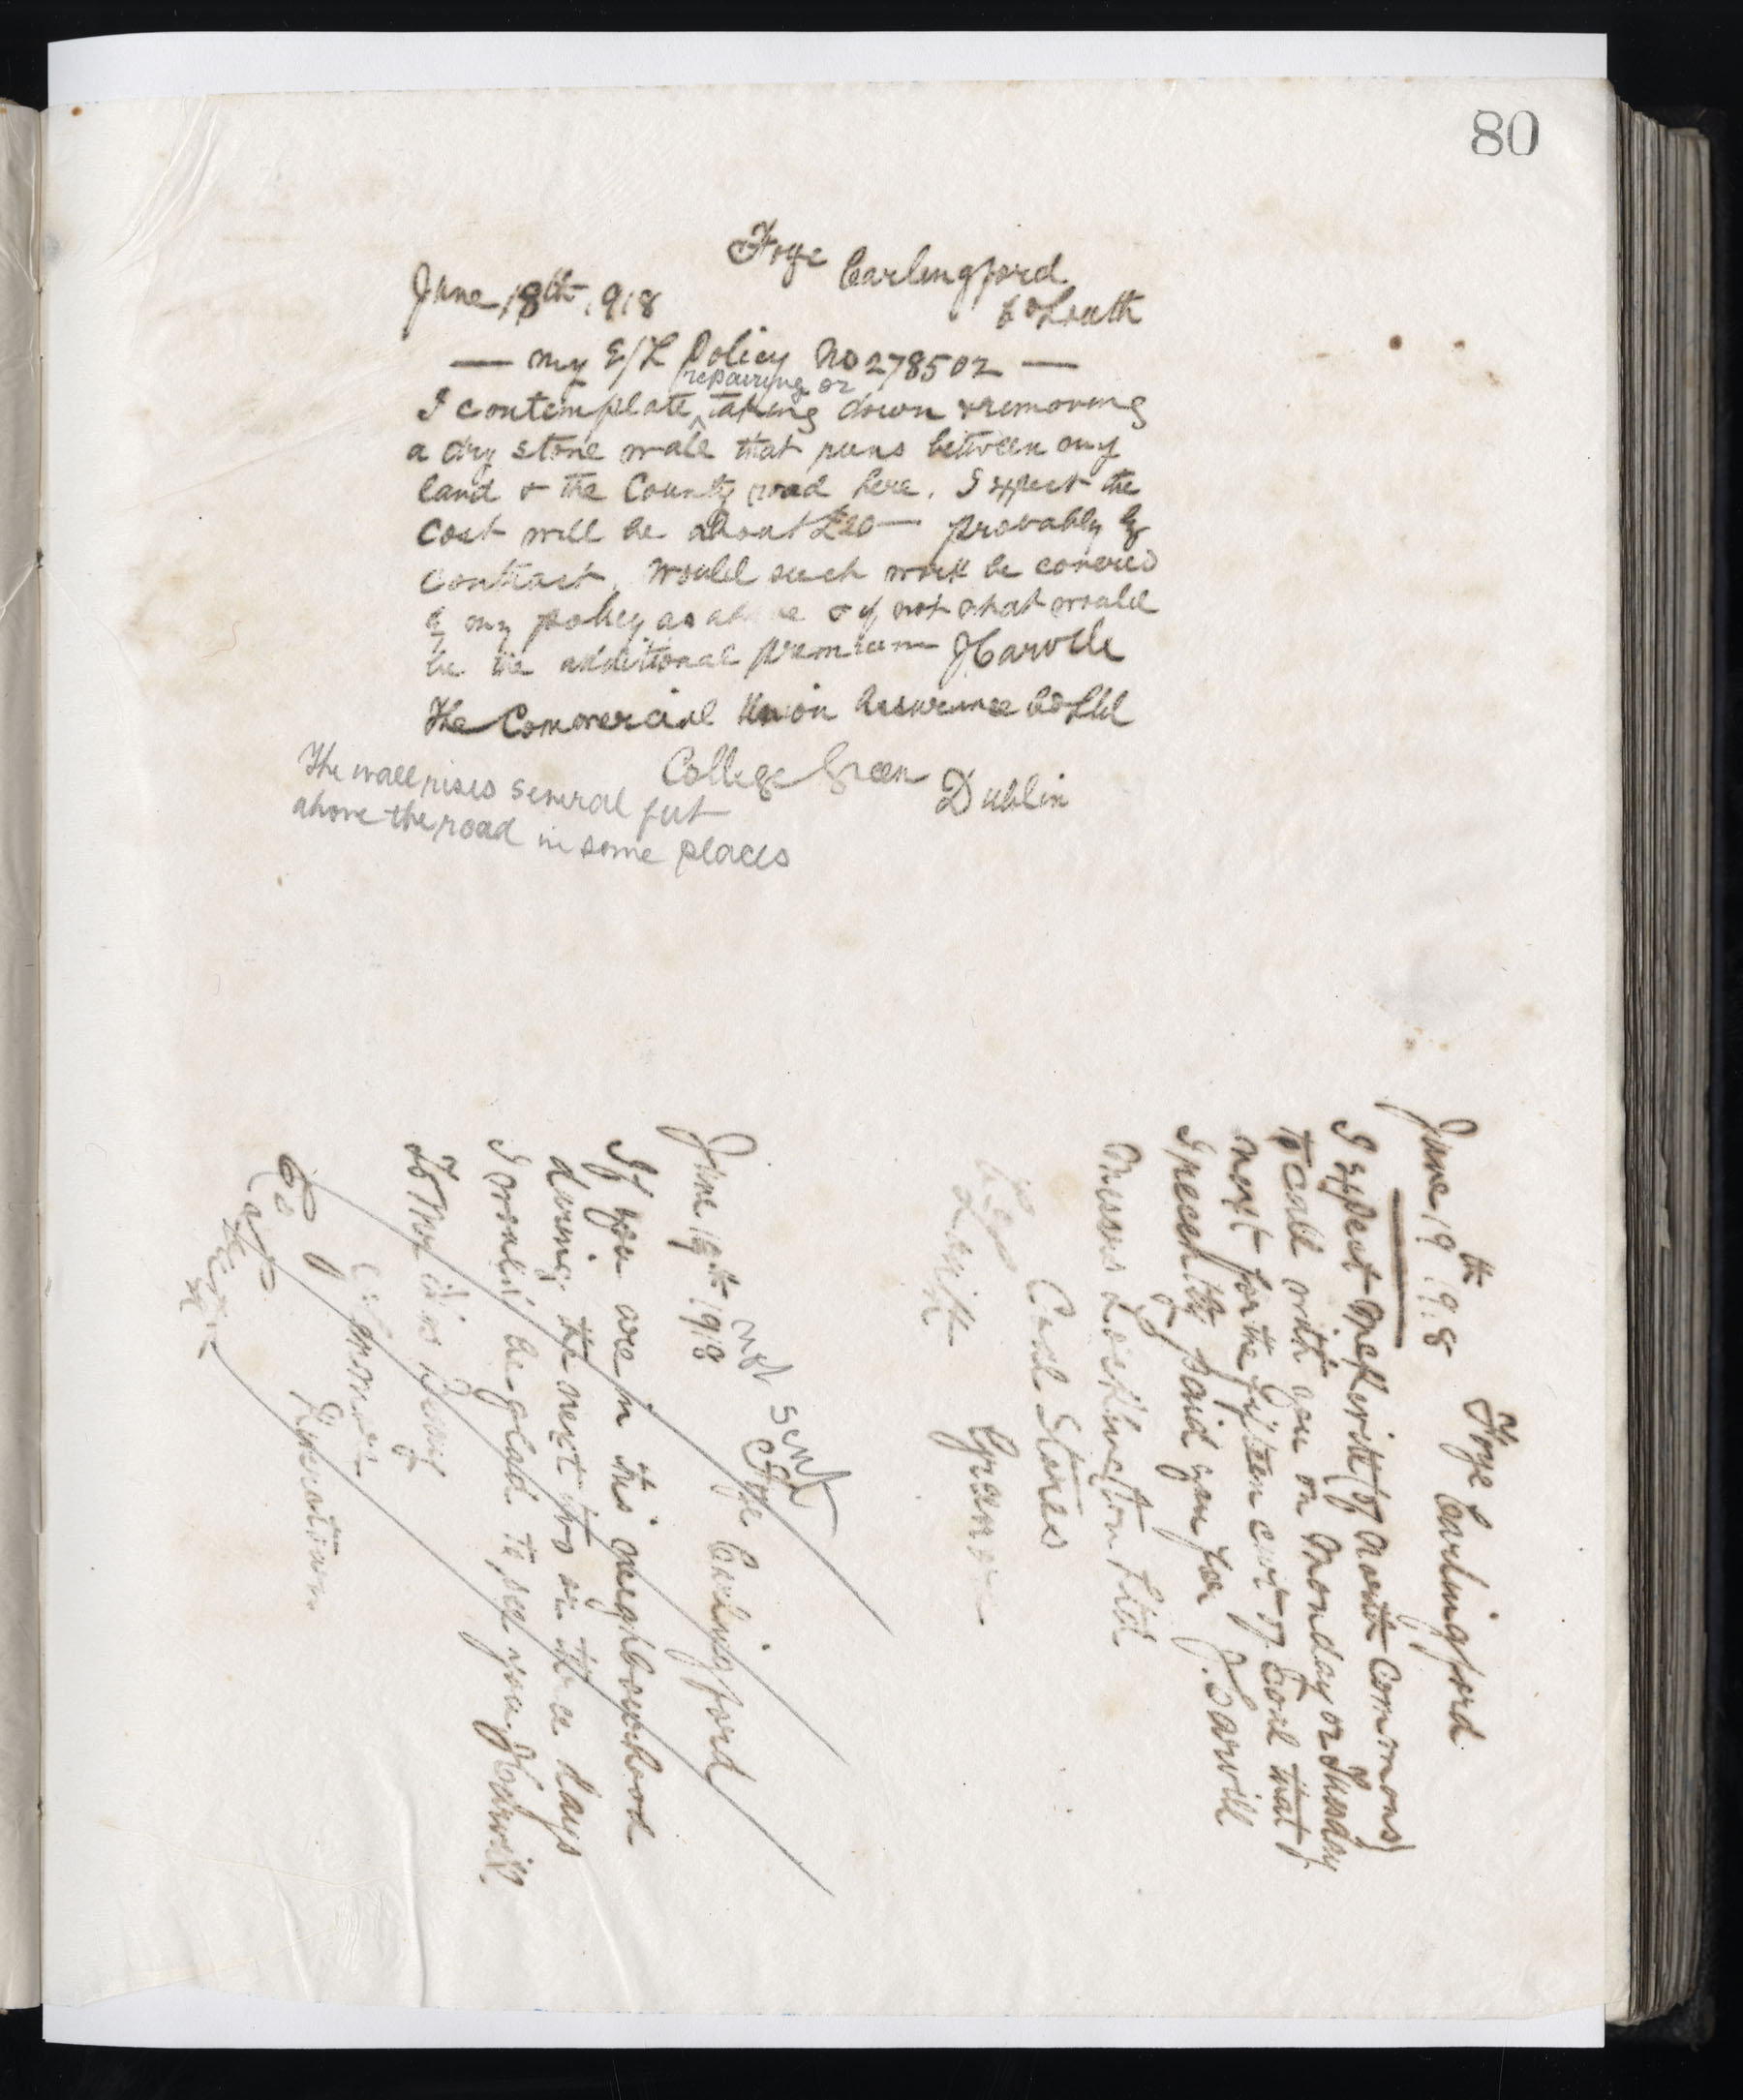 80
Foye Carlingford
June 18th 1918 Co Louth
— my E/L Policy No 278502 —
repairing or
I contemplate taking down & removing
a dry stone wall that runs between my
land & the County road here. I expect the
Cost will be about £20 — probably by
Contract. Would such work be covered
by my policy as above & if not what would
be the additional premium JCarvill
The Commercial Union Assurance Co Ltd
College Green Dublin
The wall rises several feet
above the road in some places
Foye Carlingford
June 19th 1918
I expect (of North Commons)
to call with you on Monday or Tuesday
next for the fifteen cwt of Coal that
I recently paid you for J. Carvill
Messrs Lockington Ltd
Coal Stores
Louth
not sent
Foye Carlingford
June 19th 1918
If you are in this neighbourhood
during the next two or three days
I would be glad to see you. JCarvill
To